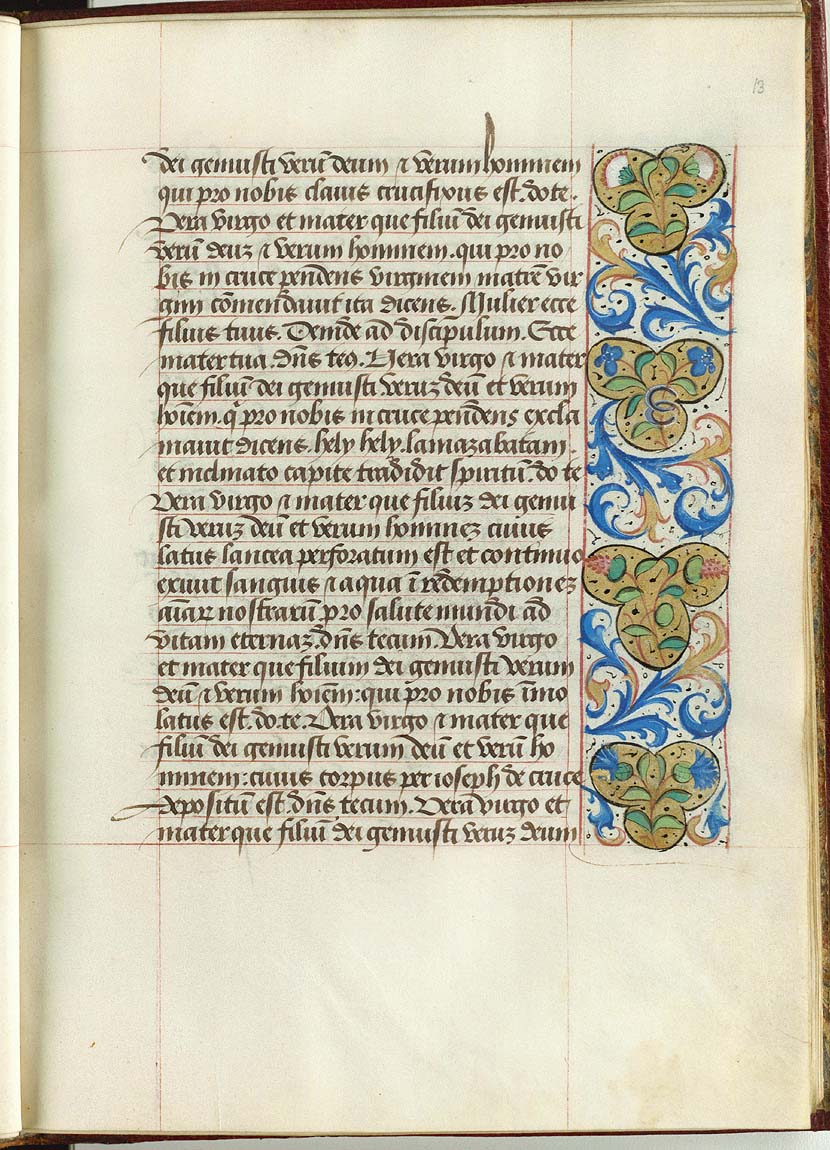 13
dei genuisti verū deum ⁊ verum hominem
qui pro nobis clauis crucifixus est. do te.
Vera virgo et mater que filiū dei genuisti
verū deuz ⁊ verum hominem. qui pro no
bis in cruce pendens virginem matrē vir
gini cōmendauit ita dicens. Mulier ecce
filius tuus. Deinde ad discipulum. Ecce
mater tua. dn̄s te9. Vera virgo ⁊ mater
que filiū dei genuisti veruz deū et verum
hoīem. qͥ pro nobis in cruce pendens excla
mauit dicens. hely hely. lamazabatani
et inclinato capite tradidit spiritū. do te
Vera virgo ⁊ mater que filiuz dei genui
sti veruz deū et verum hominez cuius
latus lancea perforatum est et continuo
exiuit sanguis ⁊ aqua ī redemptionez
aīaꝝ nostrarū pro salute mundi ad
vitam eternaz. dn̄s tecum Vera virgo
et mater que filium dei genuisti verum
deū ⁊ verum hoīem: qui pro nobis īmo
latus est. do. te. Vera virgo ⁊ mater que
filiū dei genuisti verum deū et verū ho
minem: cuius corpus per ioseph de cruce
depositū est. dn̄s tecum. Vera virgo et
mater que filiū dei genuisti veruz deum